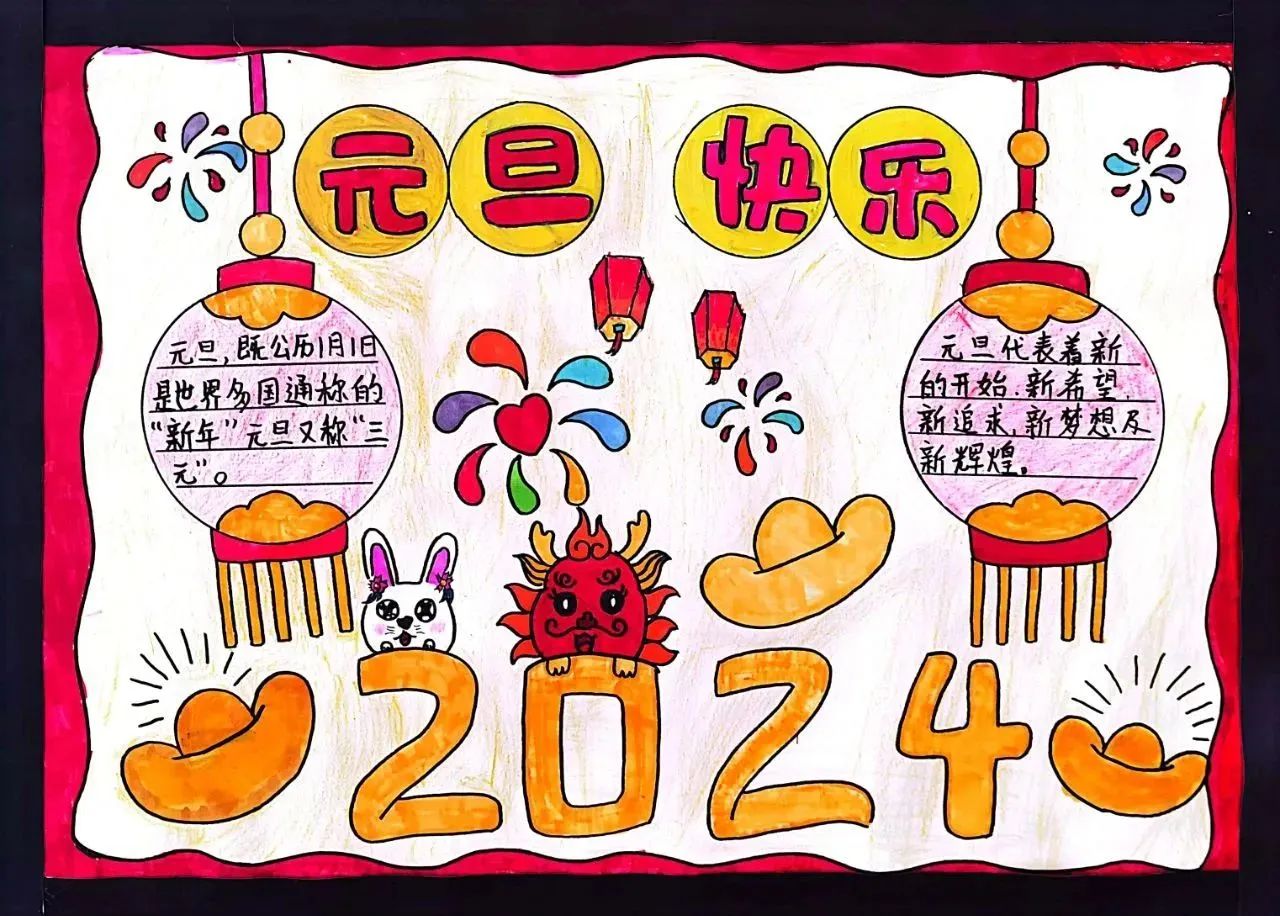 元旦 快乐
元旦,既公历1月1日
是世界多国通称的
“新年”元旦又称“三
元”。
元旦代表着新
的开始.新希望.
新追求,新梦想及
新辉煌。
2024